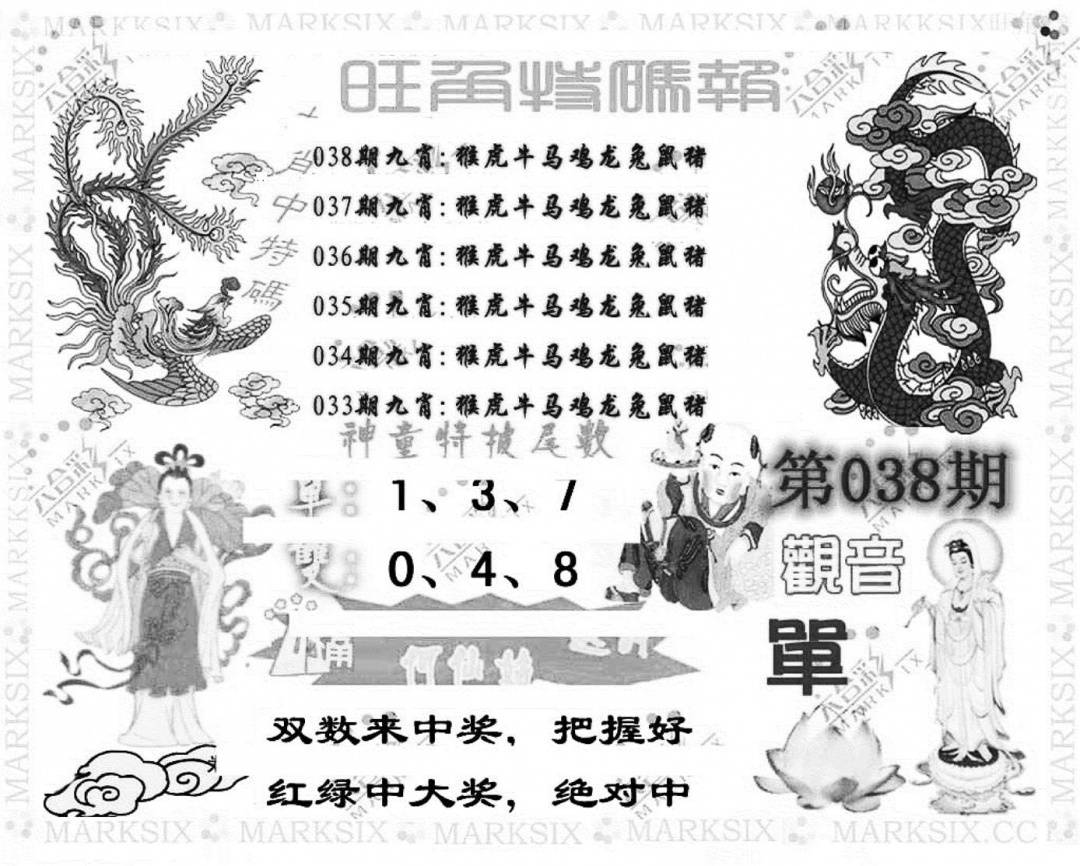 旺角特碼報
肖中特碼
038期九肖:猴虎牛马鸡龙兔鼠猪
037期九肖:猴虎牛马鸡龙兔鼠猪
036期九肖:猴虎牛马鸡龙兔鼠猪
035期九肖:猴虎牛马鸡龙兔鼠猪
034期九肖:猴虎牛马鸡龙兔鼠猪
033期九肖:猴虎牛马鸡龙兔鼠猪
神童特披尾數
單: 1、3、7
雙: 0、4、8
第038期
觀音
單
何仙姑
双数来中奖，把握好
红绿中大奖，绝对中
MARKSIX MARKSIX MARKSIX MARKSIX MARKSIX.CC